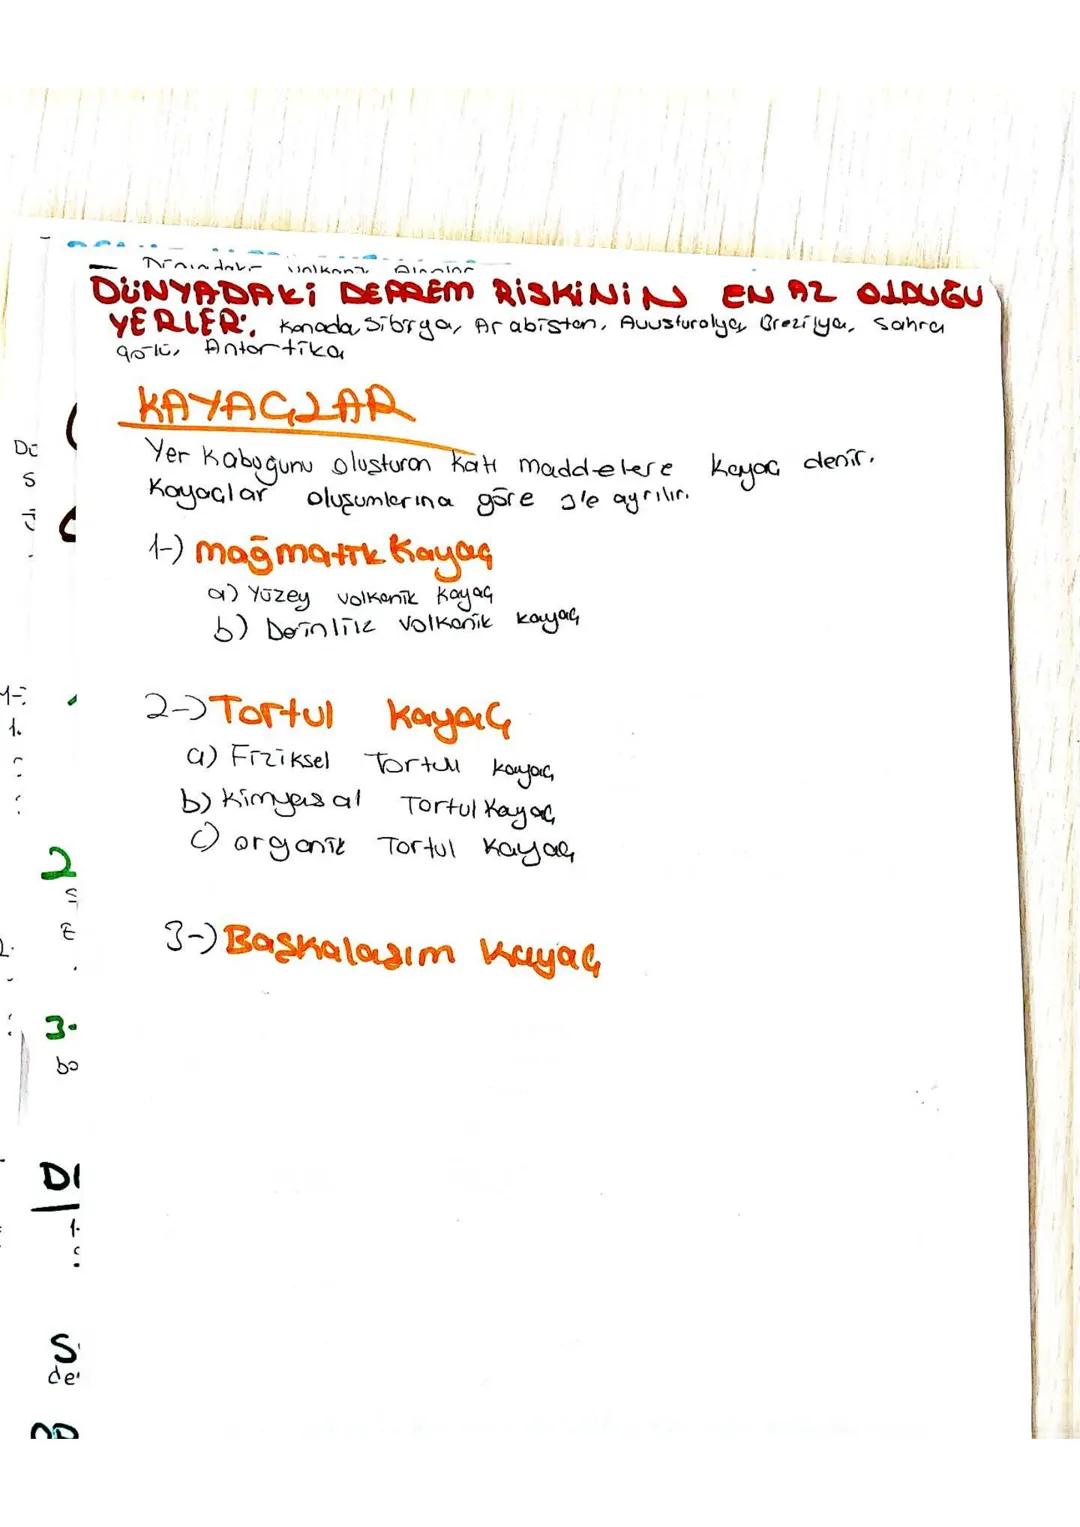 DÜNYADAKİ DEPREM RİSKİNİN EN AZ OLDUĞU
YERLER: Kanada, Sibirya, Arabistan, Avusturalya, Brezilya, Sahra
gölü, Antartika
KAYAÇLAR
Yer Kabuğunu oluşturan katı maddelere kayaç denir.
Kayaçlar oluşumlarına göre 3'e ayrılır.
1-) mağmatik Kayaç
a) Yüzey volkanik Kayaç
b) Derinlik volkanik kayaç
2-) Tortul Kayaç
a) Fiziksel Tortul kayaç
b) Kimyasal Tortul Kayaç
c) organik Tortul Kayaç
3-) Başkalaşım Kayaç
2
3-